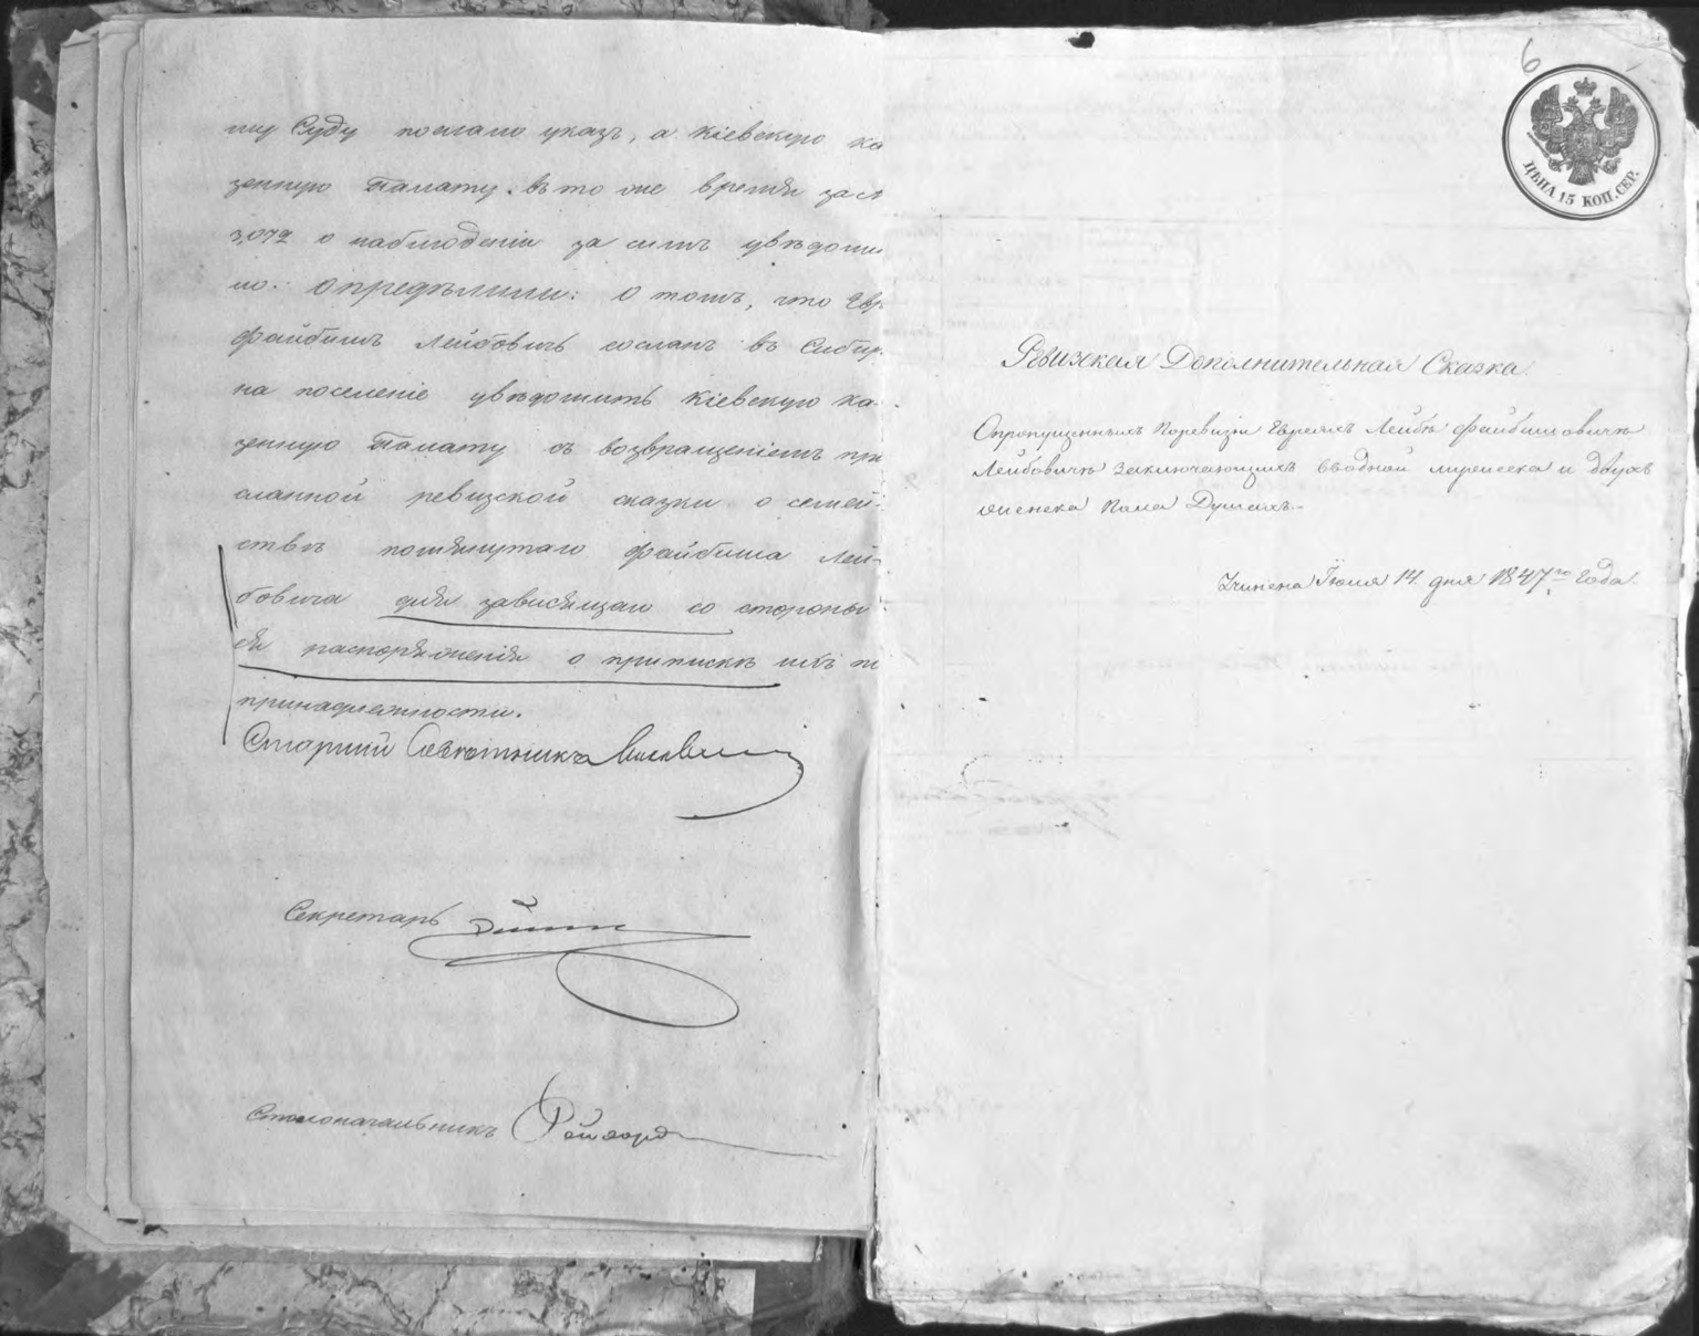 му Суду послано указъ, а Кіевскую Ка
зенную Палату въ то же время за №
3,072 о наблюденіи за симъ увѣдоми
ло. Опредѣлили: О томъ, что Евр.
Файбишъ Лейбовичъ сосланъ въ Сибир.
на поселеніе увѣдомить Кіевскую Ка-
зенную Палату съ возвращеніемъ при
сланной ревизской сказки о семей-
ствѣ помянутаго Файбиша Лей-
бовича для зависящаго со стороны
ея распоряженія о припискѣ ихъ по
принадлежности.
Старшій Совѣтникъ
Секретарь
Столоначальникъ
6
ЦѢНА 15 КОП. СЕР.
Ревизская Дополнительная Сказка.
О пропущенныхъ По ревизіи Евреяхъ Лейбѣ Файбишовичѣ
Лейбовичѣ заключающихъ в одной мужеска и двухъ
женска Пола Душахъ.-
Учинена Іюля 14. дня 1847го Года.